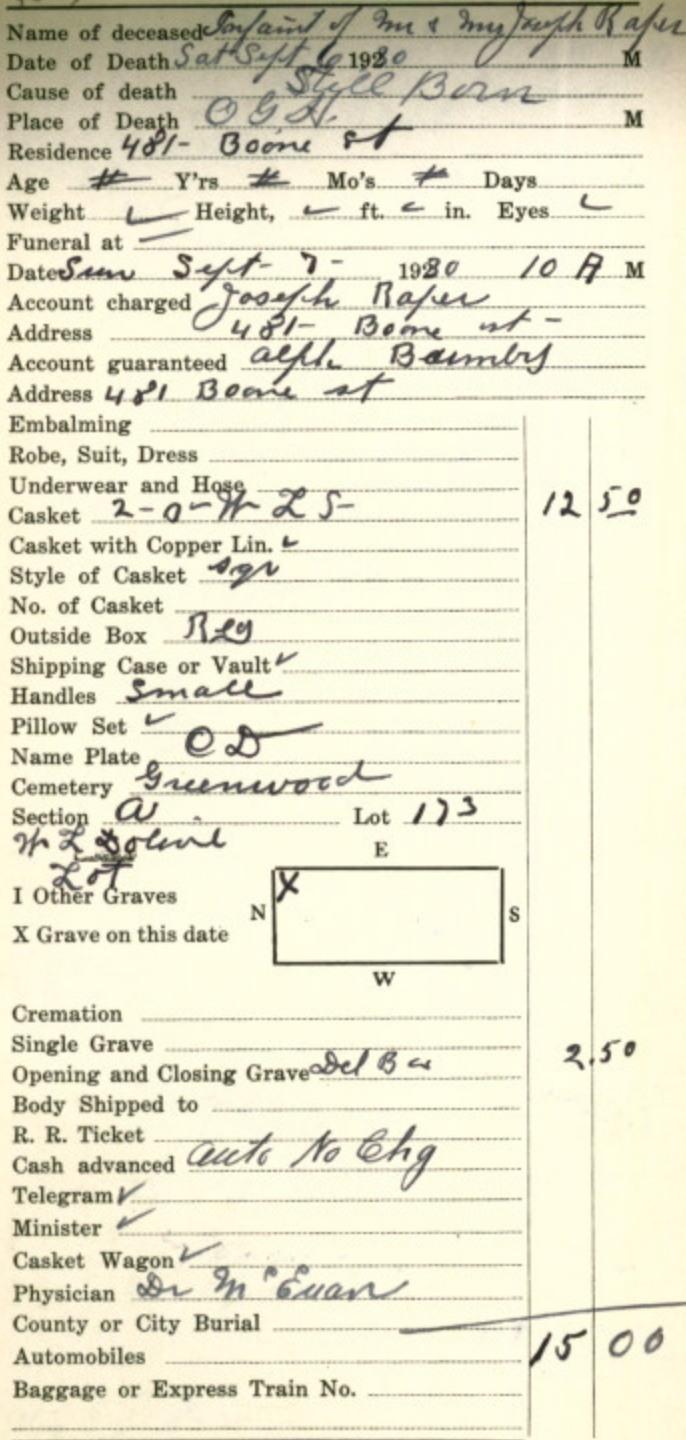 Name of deceased Infaint of Mr & Mrs Joseph Raper
Date of Death Sat Sept 6 1930 M
Cause of death Still Born
Place of Death O G H. M
Residence 481- Boone st
Age # Y'rs # Mo's # Days
Weight Height, ft. in. Eyes
Funeral at —
Date Sun Sept- 7- 1930 10 A M
Account charged Joseph Raper
Address 481- Boone st -
Account guaranteed
Address 481 Boone st
Embalming
Robe, Suit, Dress
Underwear and Hose
Casket 2-0- W L S- 12 50
Casket with Copper Lin. ✓
Style of Casket sqr
No. of Casket
Outside Box Reg
Shipping Case or Vault ✓
Handles Small
Pillow Set ✓
Name Plate O D
Cemetery Greenwood
Section A Lot 173
W L
Lot
E
I Other Graves
X
N S
X Grave on this date
W
Cremation
Single Grave
Opening and Closing Grave Del B 2.50
Body Shipped to
R. R. Ticket
Cash advanced Auto No Chg
Telegram ✓
Minister ✓
Casket Wagon ✓
Physician Dr McEuan
County or City Burial
Automobiles 15 00
Baggage or Express Train No.